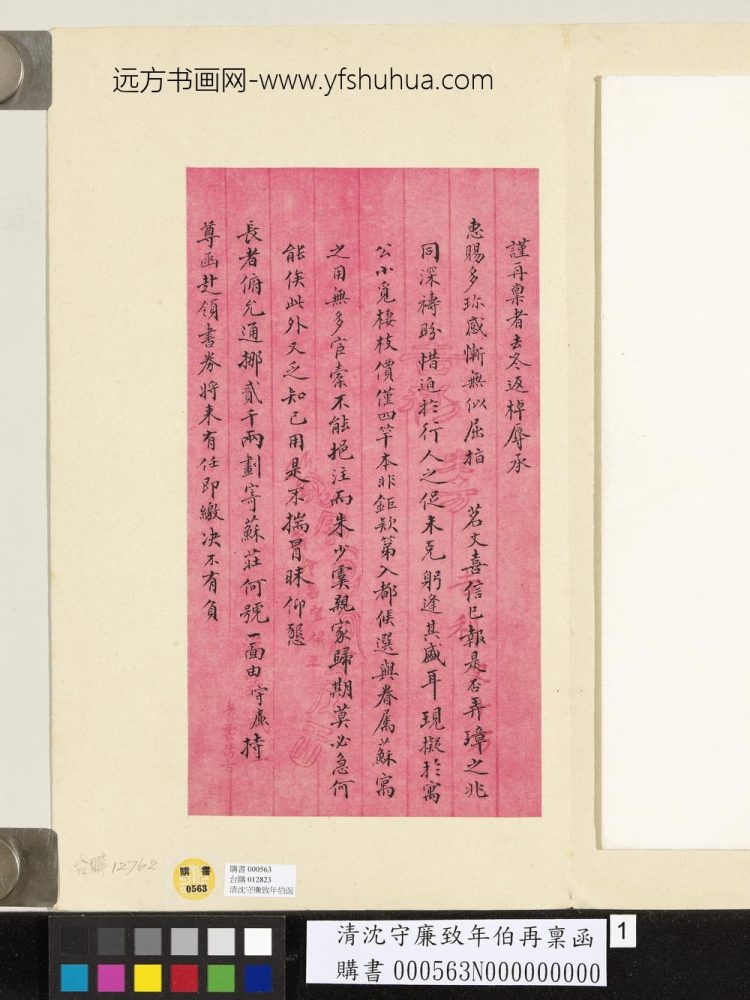 远方书画网-www.yfshuhua.com
謹再稟者去冬返棹辱承
惠賜多珍感慚無似屈指 茗文喜信已報是否弄璋之兆
同深禱盼惜迫於行人之促未克躬逢其盛耳現擬於寓
公小覓棲枝價僅四竿本非鉅款第入都候選與眷屬蘇寓
之用無多官橐不能挹注而朱少虞親家歸期莫必急何
能俟此外又乏知己用是不揣冒昧仰懇
長者俯允通挪貳千兩劃寄蘇莊何號一面由守廉持
尊函赴領書券將來有任即繳決不有負
台購 12762
購書
0563
購書 000563
台購 012823
清沈守廉致年伯函
清沈守廉致年伯再稟函
購書 000563N000000000
1